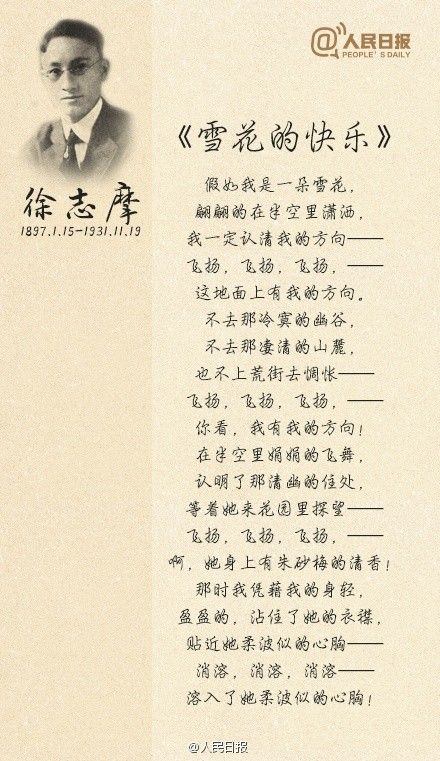 @人民日报
PEOPLE'S DAILY
徐志摩
1897.1.15-1931.11.19
《雪花的快乐》
假如我是一朵雪花,
翩翩的在半空里潇洒,
我一定认清我的方向——
飞扬,飞扬,飞扬,——
这地面上有我的方向。
不去那冷寞的幽谷,
不去那凄清的山麓,
也不上荒街去惆怅——
飞扬,飞扬,飞扬,——
你看,我有我的方向!
在半空里娟娟的飞舞,
认明了那清幽的住处,
等着她来花园里探望——
飞扬,飞扬,飞扬,——
啊,她身上有朱砂梅的清香!
那时我凭藉我的身轻,
盈盈的,沾住了她的衣襟,
贴近她柔波似的心胸——
消溶,消溶,消溶——
溶入了她柔波似的心胸!
@人民日报